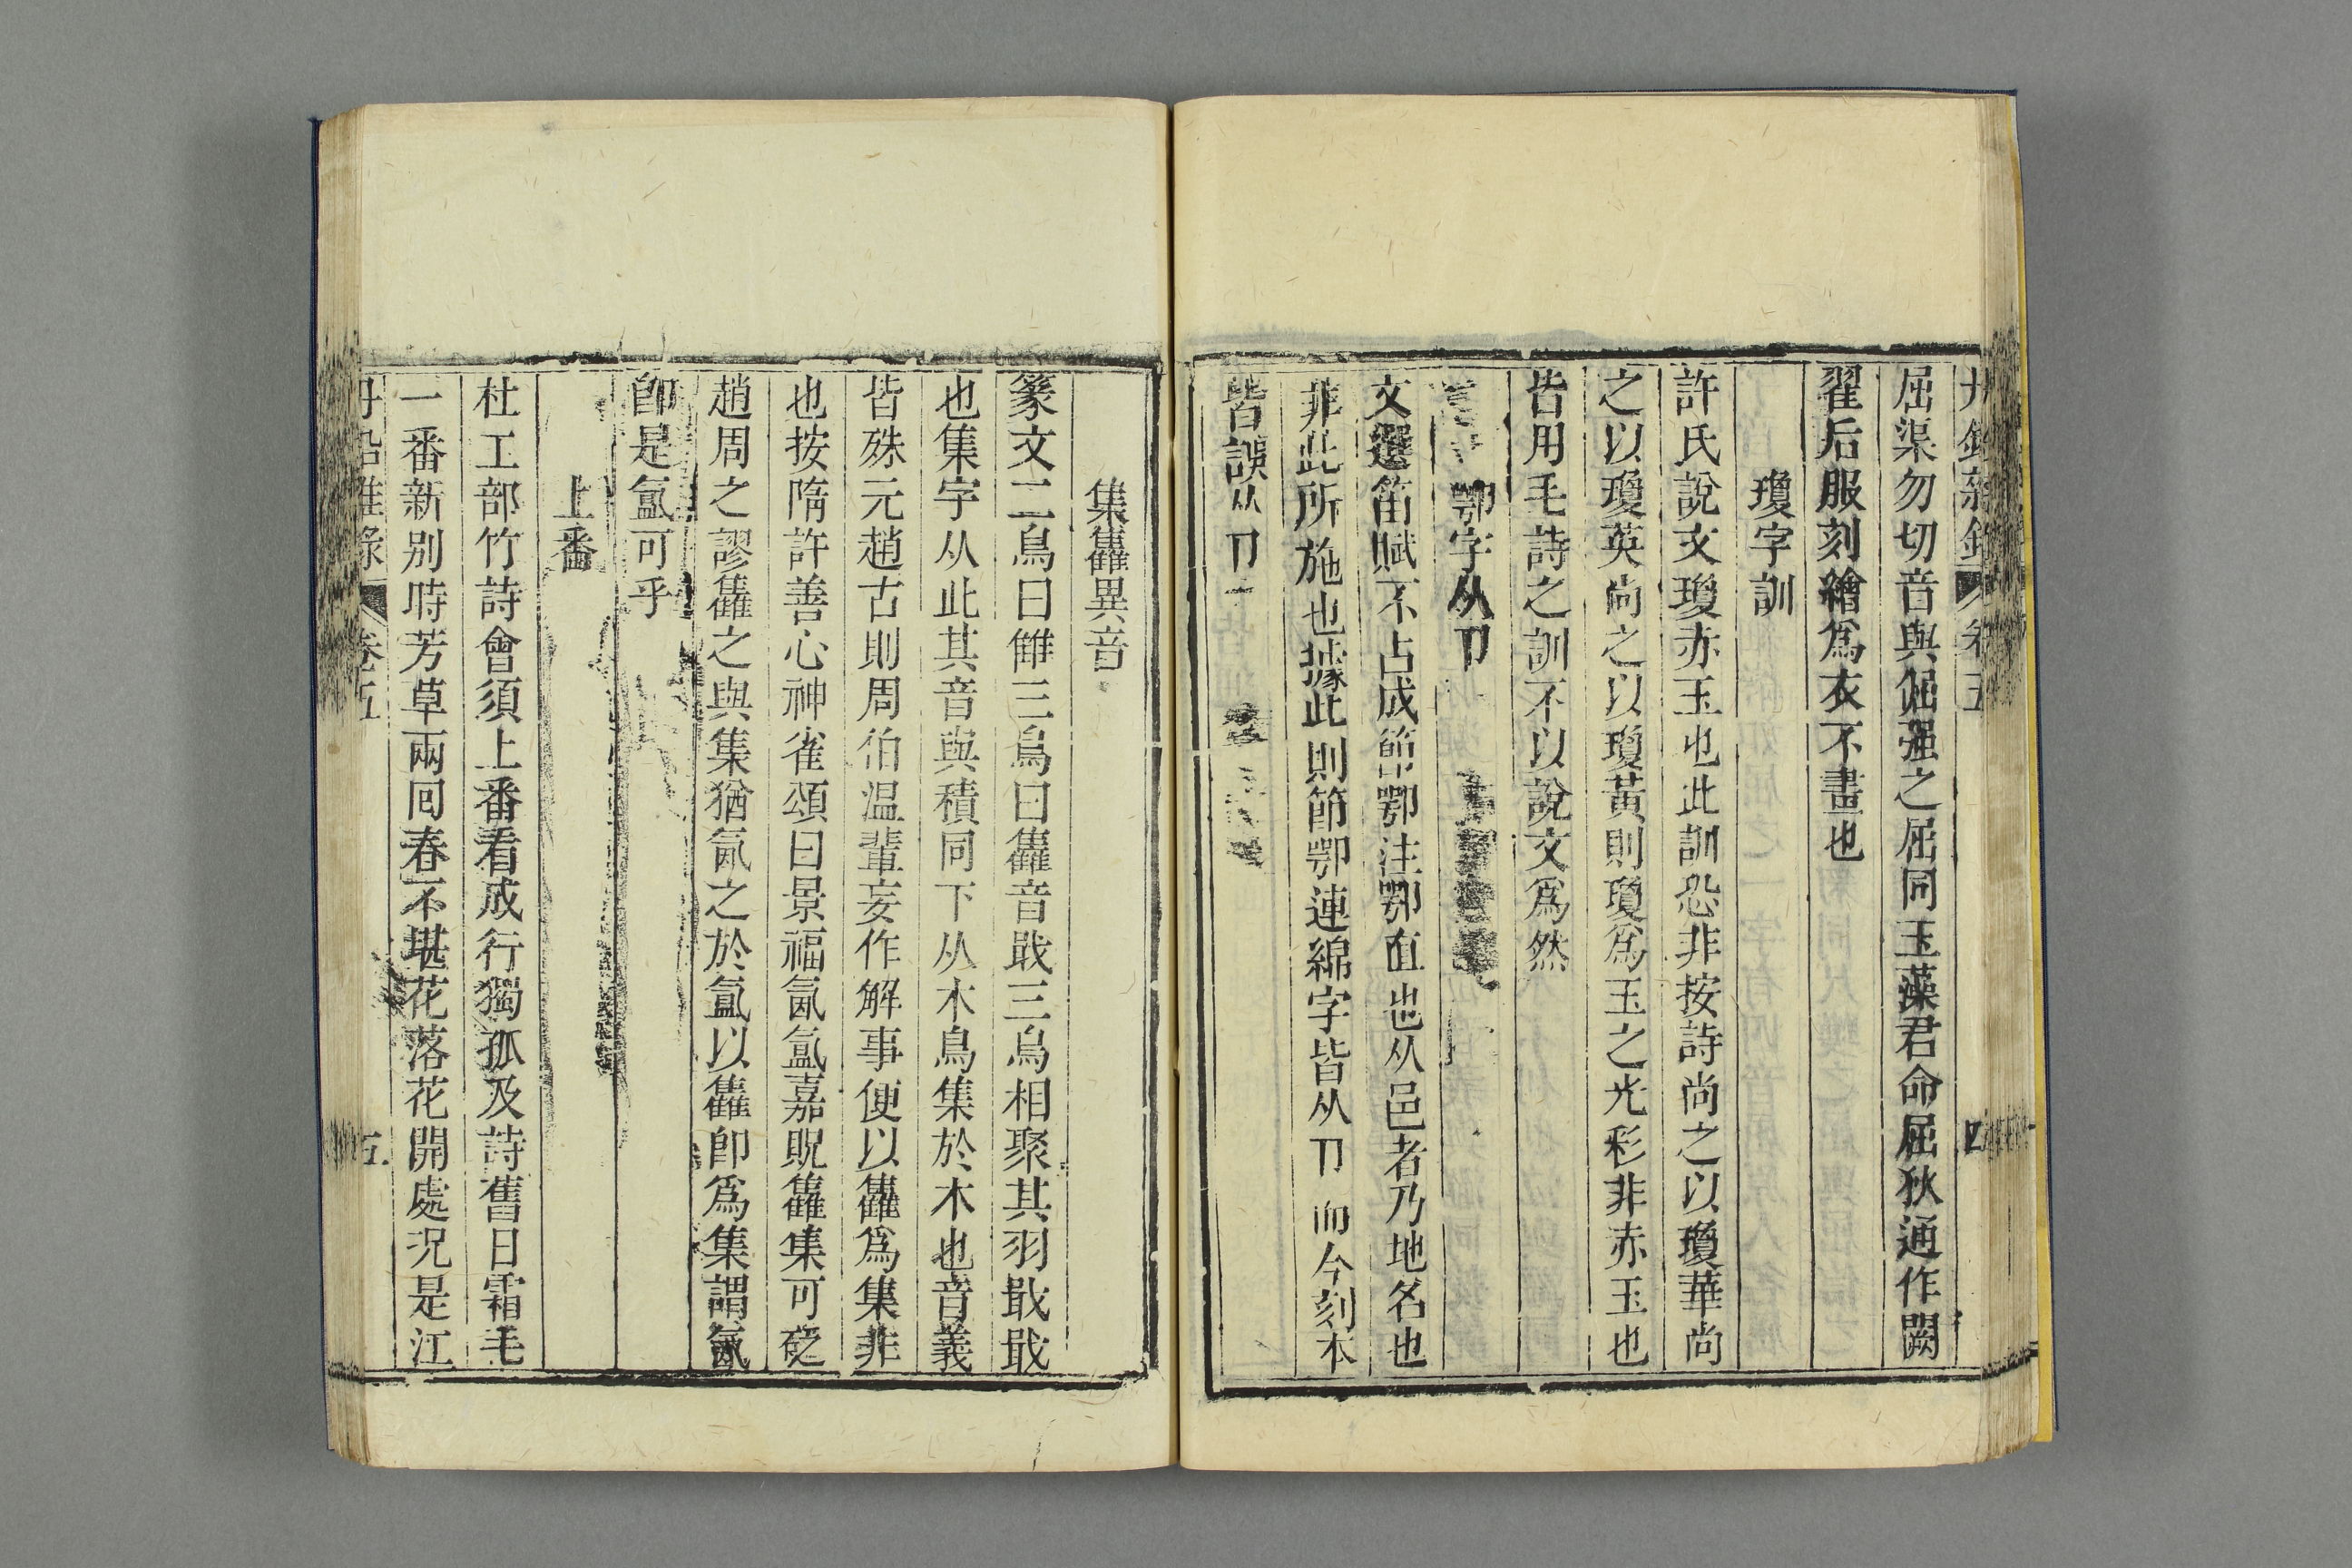 屈渠勿切音與倔强之屈同玉藻君命屈狄通作闕
翟后服刻繒爲衣不畫也
瓊字訓
許氏說文瓊赤玉也此訓恐非按詩尚之以瓊華尚
之以瓊英尚之以瓊黃則瓊爲玉之光彩非赤玉也
皆用毛詩之訓不以說文爲然
鄂字从卩
文選笛賦不占成節鄂注鄂直也从邑者乃地名也
非此所施也據此則節鄂連綿字皆从卩而今刻本
皆誤从卩
集雥異音
篆文二鳥曰雔三鳥曰雥音戢三鳥相聚其羽戢戢
也集字从此其音與積同下从木鳥集於木也音義
皆殊元趙古則周伯温輩妄作解事便以雥爲集非
也按隋許善心神雀頌曰景福氤氳嘉貺雥集可證
趙周之謬雥之與集猶氤之於氳以雥卽爲集謂氤
卽是氳可乎
上番
杜工部竹詩會須上番看成行獨孤及詩舊日霜毛
一番新别時芳草兩回春不堪花落花開處況是江
卷五
五